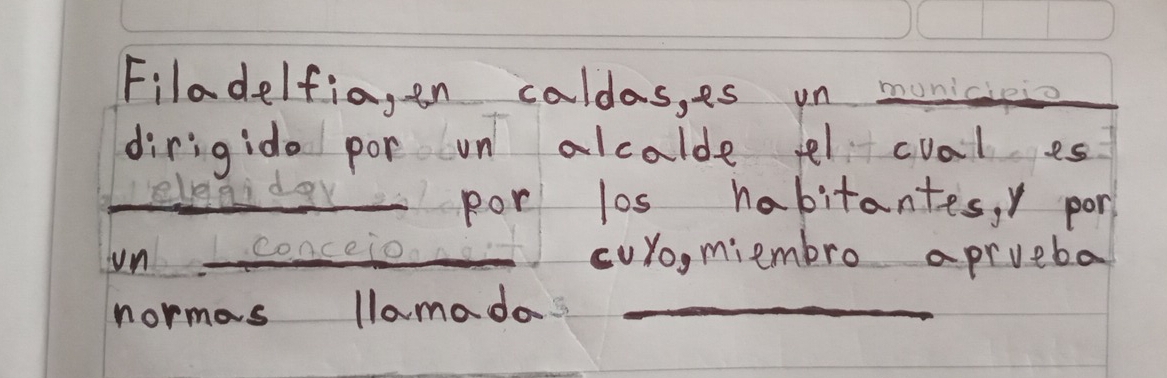 Filadelfia,en caldas,es un municipio
dirigido por un alcalde el cual es
elegido por los habitantes,y por
un concejo cuyo,miembro aprueba
normas llamadas